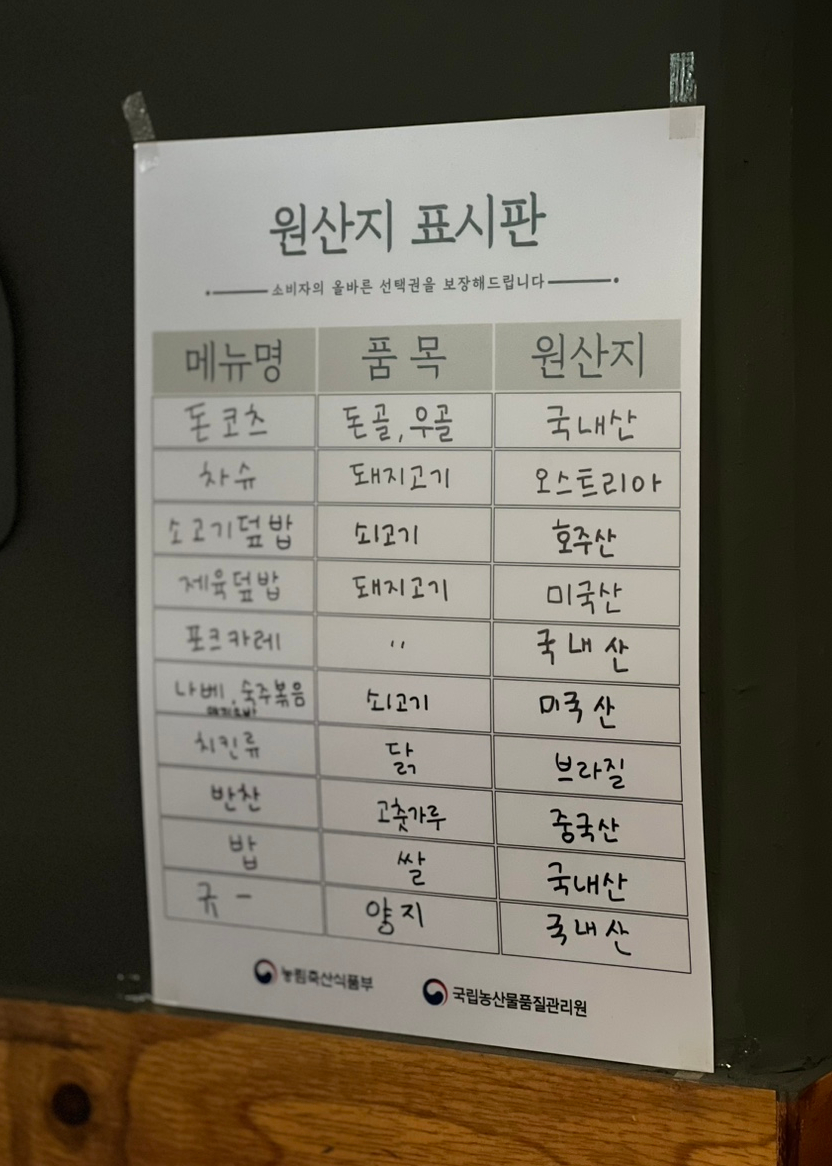 원산지 표시판
소비자의 올바른 선택권을 보장해드립니다
메뉴명 품 목 원산지
돈코츠 돈골, 우골 국내산
차슈 돼지고기 오스트리아
소고기덮밥 쇠고기 호주산
제육덮밥 돼지고기 미국산
포크카레 〃 국내산
나베, 숙주볶음 쇠고기 미국산
치킨류 닭 브라질
반찬 고춧가루 중국산
밥 쌀 국내산
규- 양지 국내산
농림축산식품부 국립농산물품질관리원